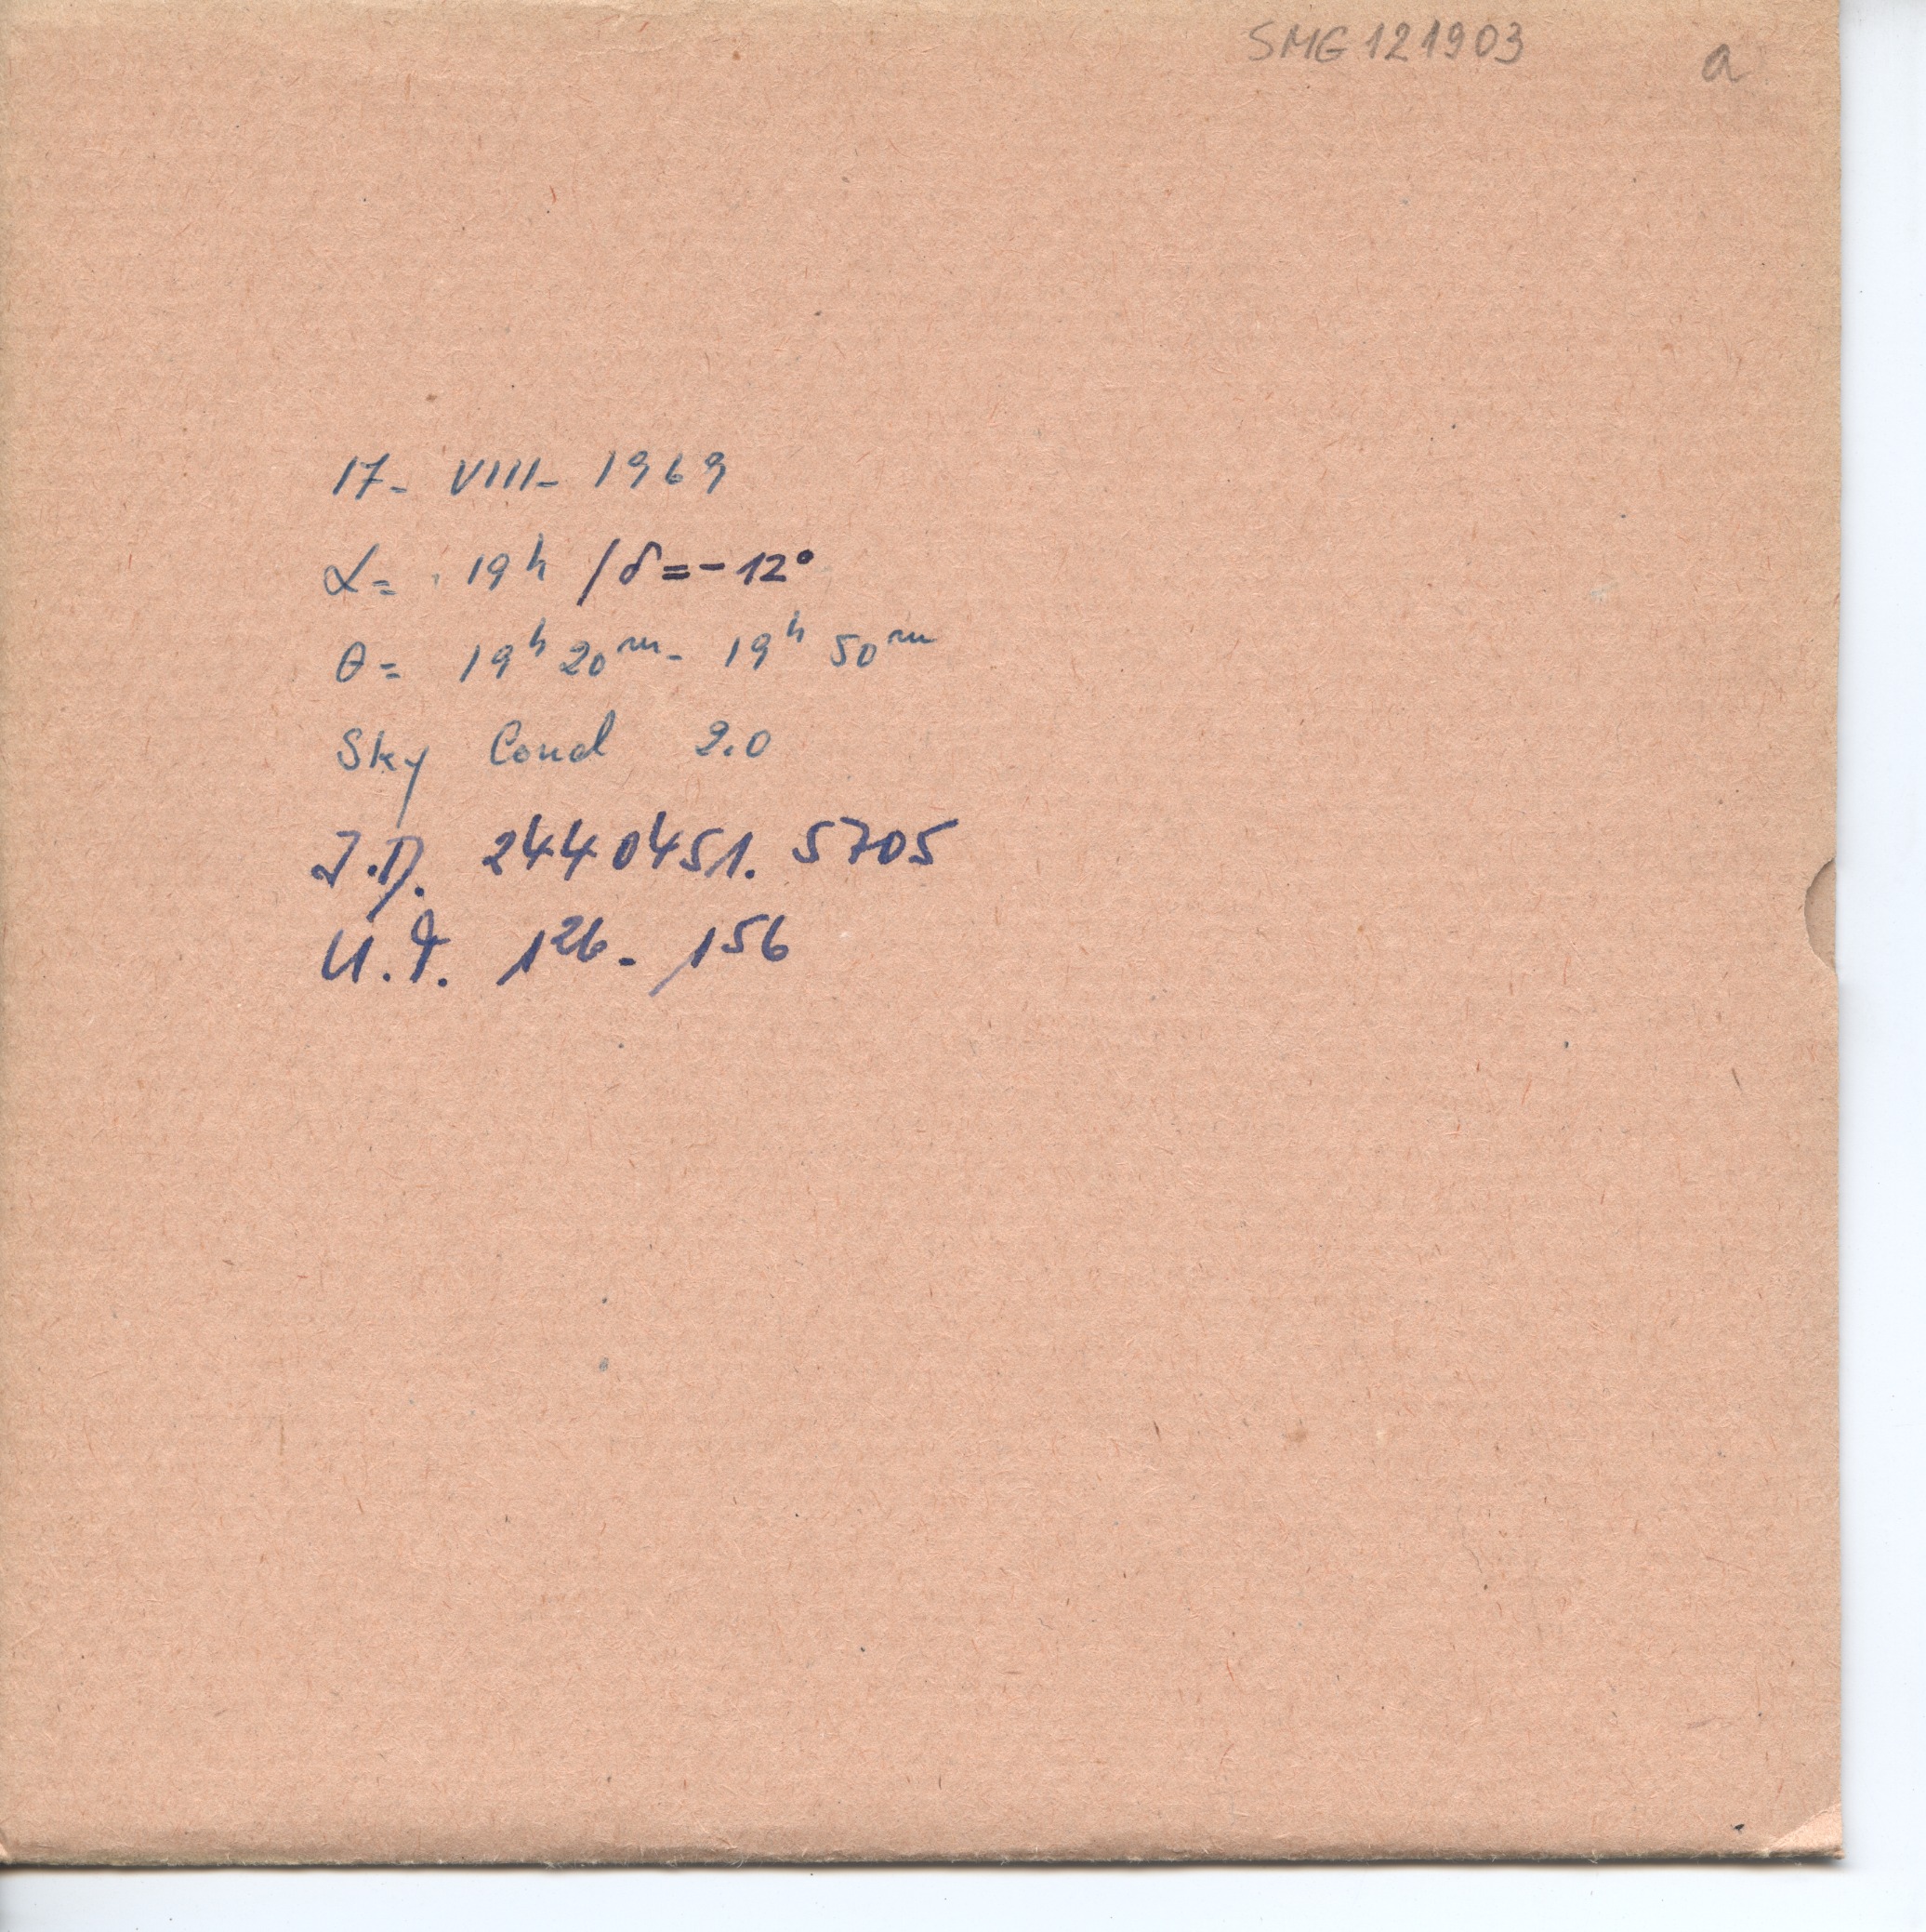 SMG 121903 a
17- VIII- 1969
α= 19ʰ /δ=-12°
θ= 19ʰ 20ᵐ- 19ʰ 50ᵐ
Sky Cond 2.0
J.D. 2440451.5705
U.T. 1²⁶- 1⁵⁶